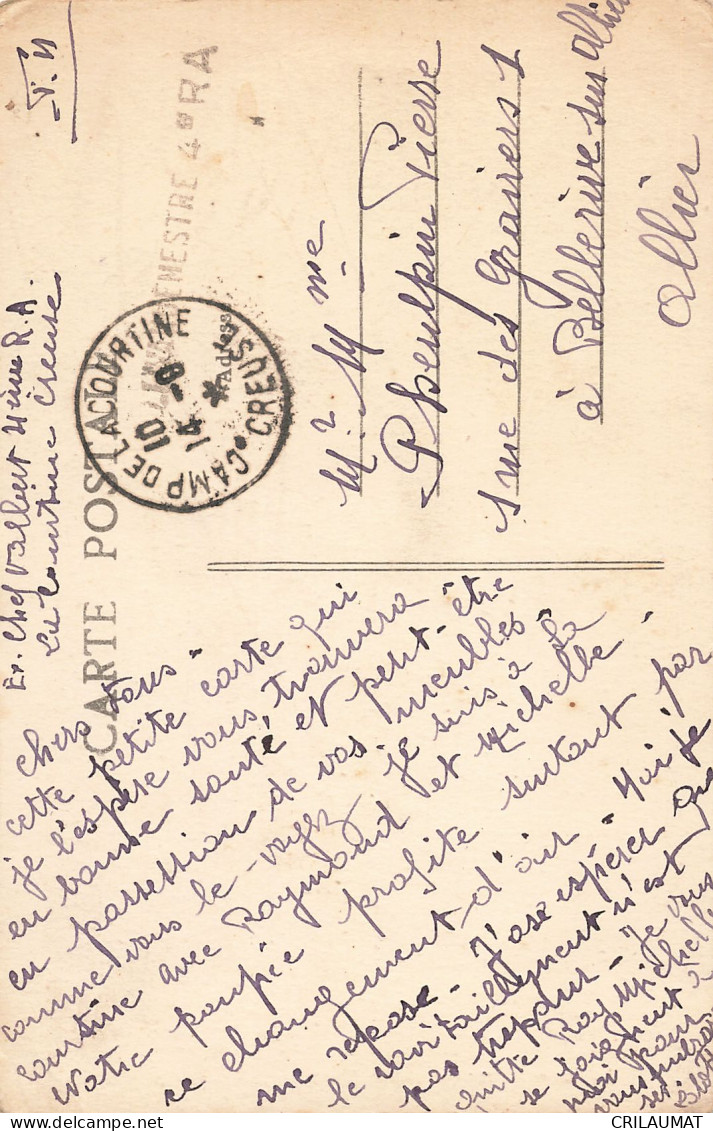 CARTE POSTALE
T. M
Ex. Chef Valbert 4ième R.A.
La Courtine Creuse
4e RA
CAMP DE LA COURTINE
CREUSE
10
14 - 9
Adresse
Mr. Mme
Pheulpin Pierre
rue des Graviers 1
à Bellerive sur Allier
Allier
chers tous -
cette petite carte qui
je l'espère vous trouvera
en bonne santé et peut-être
en possession de vos meubles -
comme vous le voyez je suis à La
Courtine avec Raymond et Michelle -
Notre poupée profite surtout par
ce changement d'air - Moi je
me repose - J'ose espérer que
le ravitaillement n'est
pas trop dur - Je vous
quitte Ray Michelle
se joignent à
moi pour
vous
CRILAUMAT